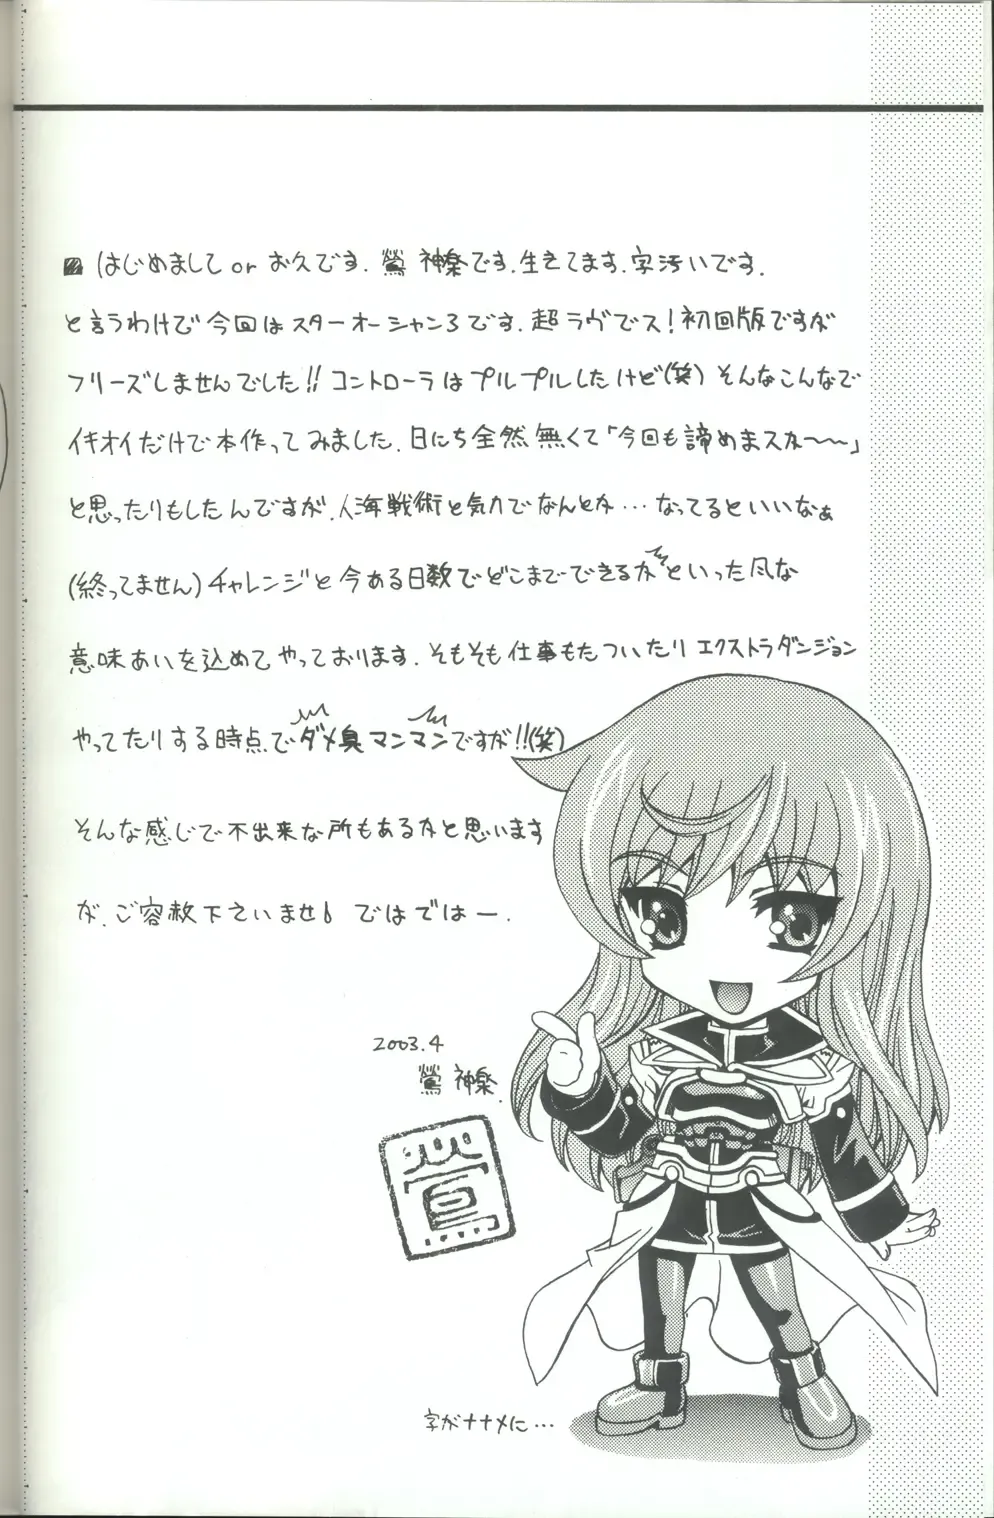 ■ はじめまして or お久です. 鶯 神楽です.生きてます.字汚いです.
と言うわけで今回はスターオーシャン3です.超ラヴでス!初回版ですが
フリーズしませんでした!! コントローラはプルプルしたけど(笑) そんなこんなで
イキオイだけで本作ってみました.日にち全然無くて「今回も諦めまスか〜〜」
と思ったりもしたんですが.人海戦術と気力でなんとか…なってるといいなぁ
(終ってません)チャレンジと今ある日数でどこまでできるかといった風な
意味あいを込めてやっております.そもそも仕事もたついたりエクストラダンジョン
やってたりする時点でダメ臭マンマンですが!!(笑)
そんな感じで不出来な所もあるかと思います
が.ご容赦下さいませ ではではー.
2003.4
鶯 神楽.
鶯
字がナナメに…